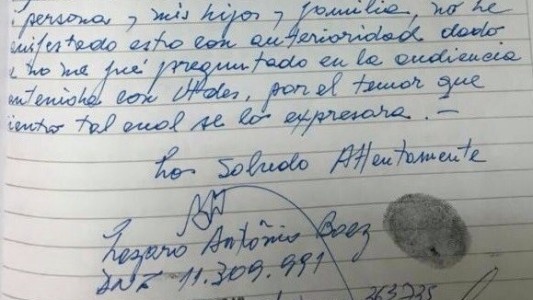 persona, y mis hijos, y familia, no he
anifestado esto con anterioridad dado
no me fué preguntado en la audiencia
antenida con Uddes, por el temor que
iento tal cual se los expresara. —
Los Saludo Attentamente
Lazaro Antônio Baez
DNI 11.309.991
263735